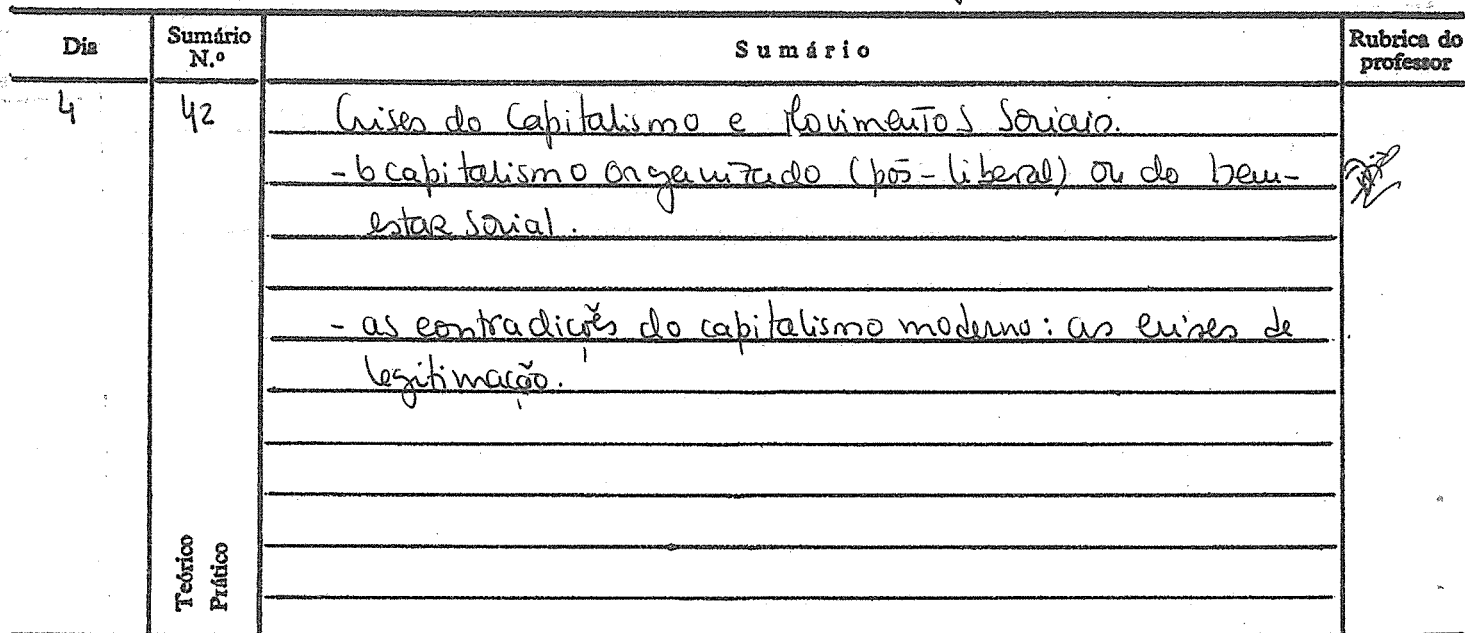 Dia Sumário N.º Sumário Rubrica do professor
4 42 Crises do Capitalismo e Movimentos Sociais.
- O capitalismo organizado (pós-liberal) ou do bem-
estar social.
- as contradições do capitalismo moderno: as crises de
legitimação.
Teórico
Prático